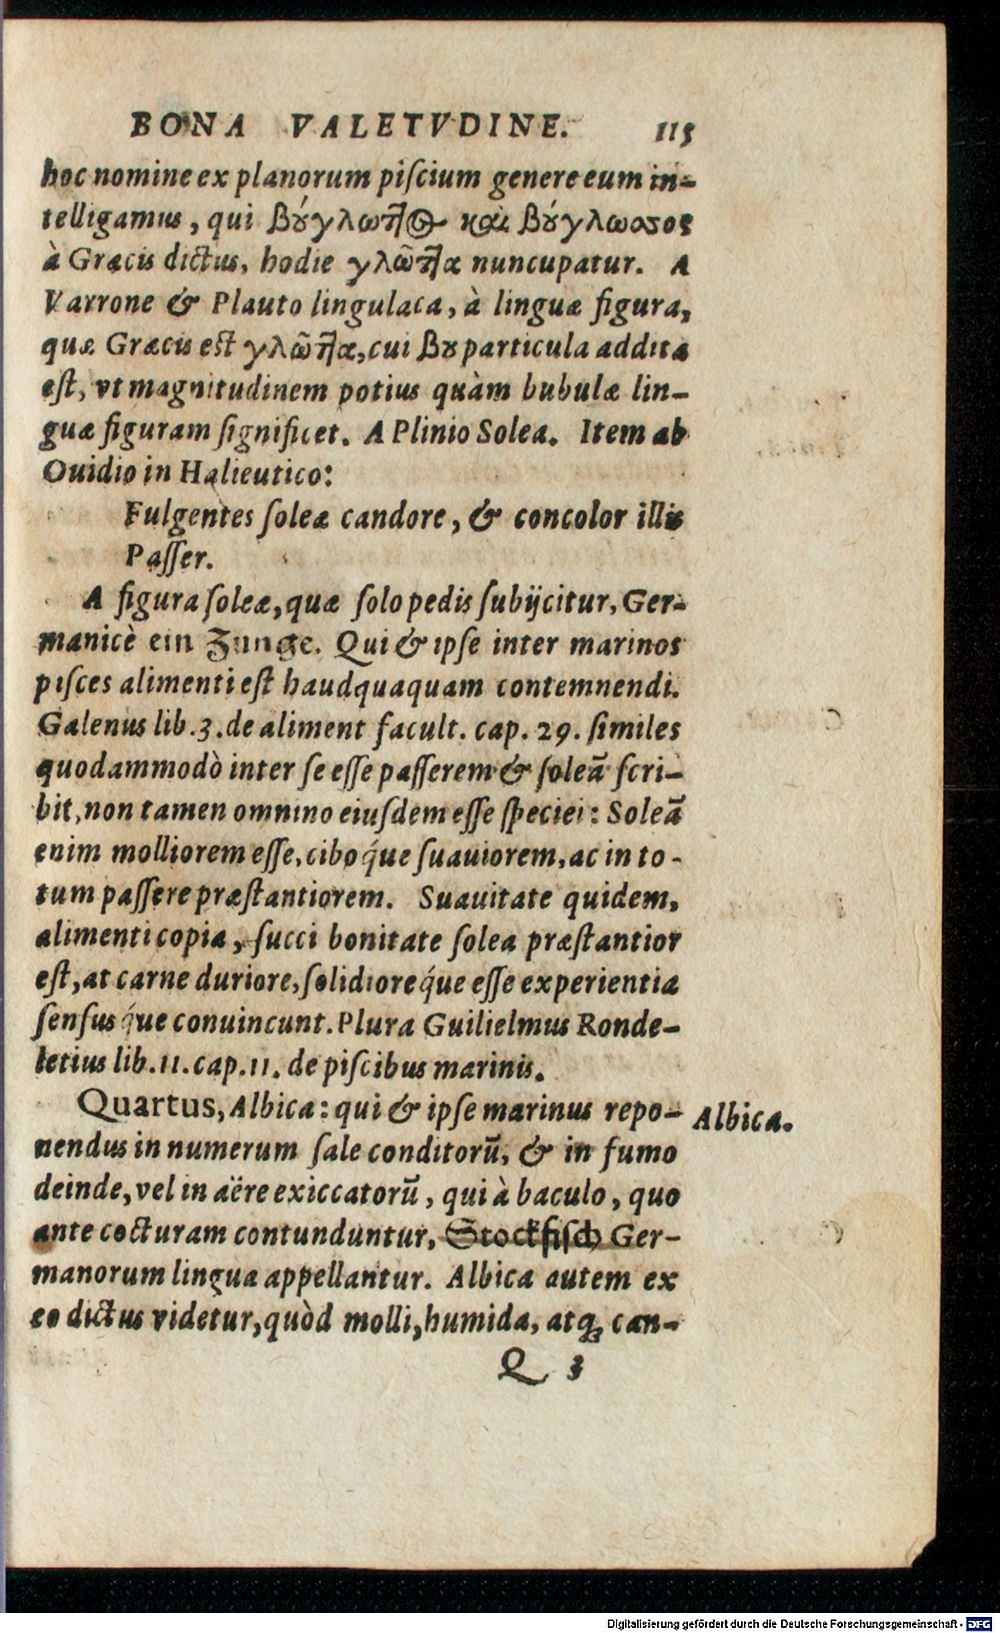 BONA VALETVDINE. 115
hoc nomine ex planorum piſcium genere eum in-
telligamus, qui βύγλωτ̃ος καὶ βύγλωσσος
à Græcis dictus, hodie γλῶτ̃α nuncupatur. A
Varrone & Plauto lingulaca, à linguæ figura,
quæ Græcis est γλῶτ̃α, cui βȣ particula addita
eſt, vt magnitudinem potius quàm bubulæ lin-
guæ figuram ſignificet. A Plinio Solea. Item ab
Ouidio in Halieutico:
Fulgentes ſoleæ candore, & concolor illis
Paſſer.
A figura ſoleæ, quæ ſolo pedis ſubijcitur, Ger-
manicè ein Zunge. Qui & ipſe inter marinos
piſces alimenti eſt haudquaquam contemnendi.
Galenus lib. 3. de aliment facult. cap. 29. ſimiles
quodammodò inter ſe eſſe paſſerem & ſoleã ſcri-
bit, non tamen omnino eiuſdem eſſe ſpeciei: Soleã
enim molliorem eſſe, ciboq́ue ſuauiorem, ac in to-
tum paſſere præſtantiorem. Suauitate quidem,
alimenti copia, ſucci bonitate ſolea præſtantior
eſt, at carne duriore, ſolidioreq́ue eſſe experientia
ſenſusq́ue conuincunt. Plura Guilielmus Ronde-
letius lib. 11. cap. 11. de piſcibus marinis.
Quartus, Albica: qui & ipſe marinus repo- Albica.
nendus in numerum ſale conditorũ, & in fumo
deinde, vel in aëre exiccatorũ, qui à baculo, quo
ante cocturam contunduntur, Stockfiſch Ger-
manorum lingua appellantur. Albica autem ex
eo dictus videtur, quòd molli, humida, atq; can-
Q 3
Digitalisierung gefördert durch die Deutsche Forschungsgemeinschaft - DFG